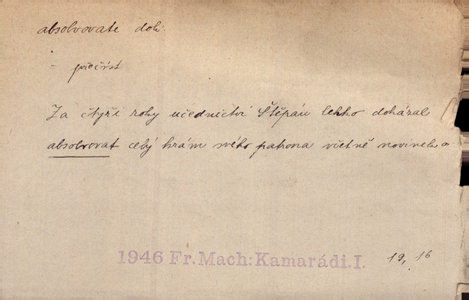 absolvovate dok.
- přečíst
Za čtyři roky učednictví Štěpán lehko dokázal
absolvovat celý krám svého patrona včetně novinek a
1946 Fr. Mach: Kamarádi. I. 19, 16